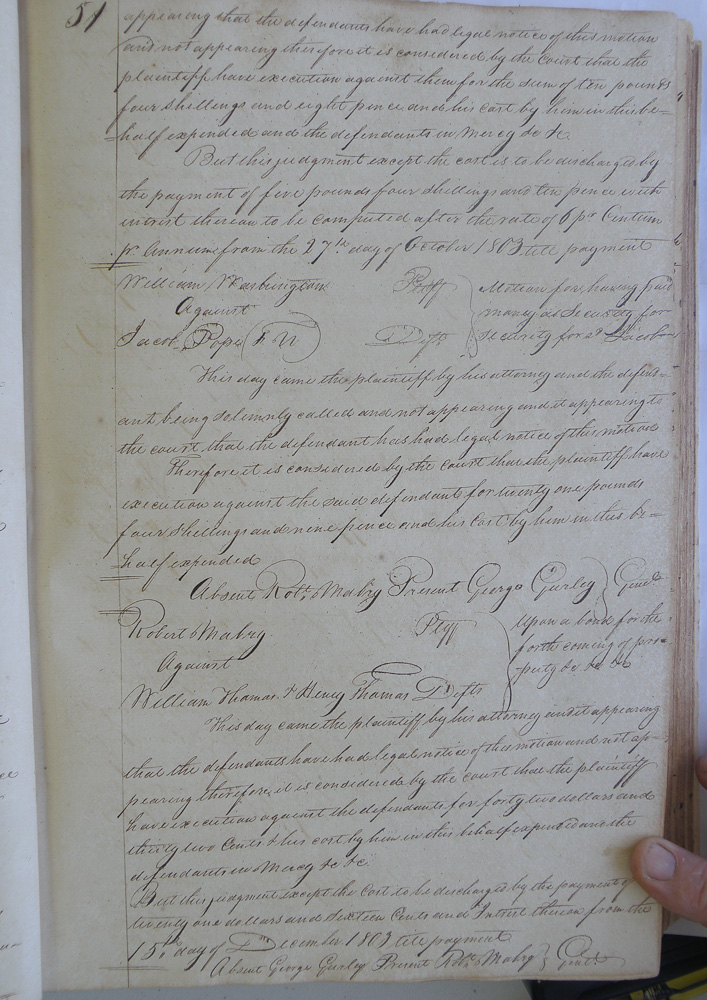 51
appearing that the defendants have had legal notice of this motion
and not appearing therefore it is considered by the Court that the
plaintiff have execution against them for the sum of ten pounds
four Shillings and eight pence and his cost by him in this be=
=half expended and the defendants in Mercy &c &c
But this judgment except the cost is to be discharged by
the payment of five pounds four Shillings and ten pence with
interest thereon to be computed after the rate of 6 pr Centum
pr Annum from the 27th day of October 1803 till payment
William Washington Pltff
Against
Jacob Pope Deft
Motion for having paid
money as Security for
Security for Jacob
This day came the plaintiff by his attorney and the defend-
ant being solemnly called and not appearing and it appearing to
the court that the defendant has had legal notice of this motion
Therefore it is considered by the Court that the plaintiff have
execution against the said defendant for twenty one pounds
four Shillings and nine pence and his Cost by him in this be=
=half expended
Absent Robt. Mabry Present George Gurley } Gent
Robert Mabry Pltff
Against
William Thomas & Henry Thomas Defts
Upon a bond for the
forth coming of pro=
perty &c &c &c
This day came the plaintiff by his attorney and it appearing
that the defendants have had legal notice of this motion and not ap-
pearing therefore it is considered by the court that the plaintiff
have execution against the defendants for forty two dollars and
thirty two Cents & his cost by him in this behalf expended and the
defendants in Mercy &c &c
But this judgment except the Cost to be discharged by the payment of
twenty one dollars and Sixteen Cents and Interest thereon from the
15th day of December 1803 till payment
Absent George Gurley Present Robt. Mabry } Gent